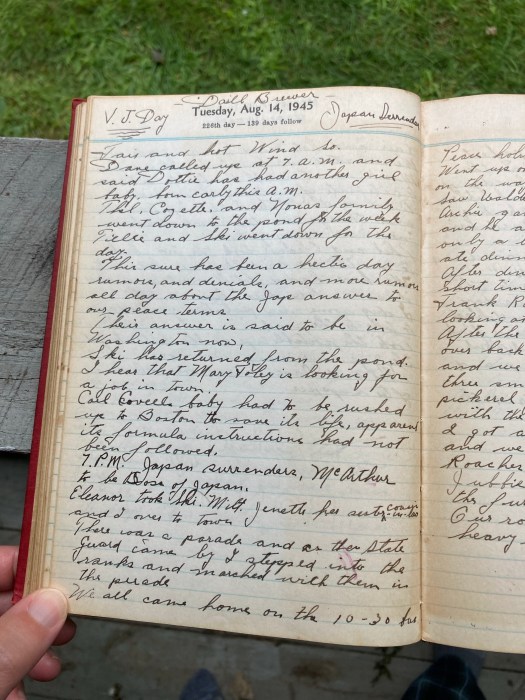 Daill Brewer
V. J. Day
Tuesday, Aug. 14, 1945
Japan Surrender
226th day — 139 days follow
Fair and hot Wind So.
Dane called up at 7. a.m. and
said Dottie has had another girl
baby, born early this A.M.
Thel, Cozette, and Nonas family
went down to the pond for the week
Tillie and Ski went down for the
day.
This sure has been a hectic day
rumors, and denials, and more rumors
all day about the Japs answer to
our peace terms
Their answer is said to be in
Washington now,
Ski has returned from the pond.
I hear that Mary Foley is looking for
a job in town,
Carl Covells baby had to be rushed
up to Boston to save its life, apparent
its formula instructions had not
been followed.
7. P.M. Japan surrenders, McArthur
to be Boss of Japan.
Eleanor took Ski, Milt, Jenette her cousin-in-law
and I over to town
There was a parade and as the State
Guard came by I stepped into the
ranks and marched with them in
the parade
We all came home on the 10-30 bus
Peace
Went up
on the
saw
Archie
and he
only a
ate dinn
After din
short tim
Frank
looking
After the
over back
and we
three sm
pickerel
with the
I got
and we
Roache
heavy